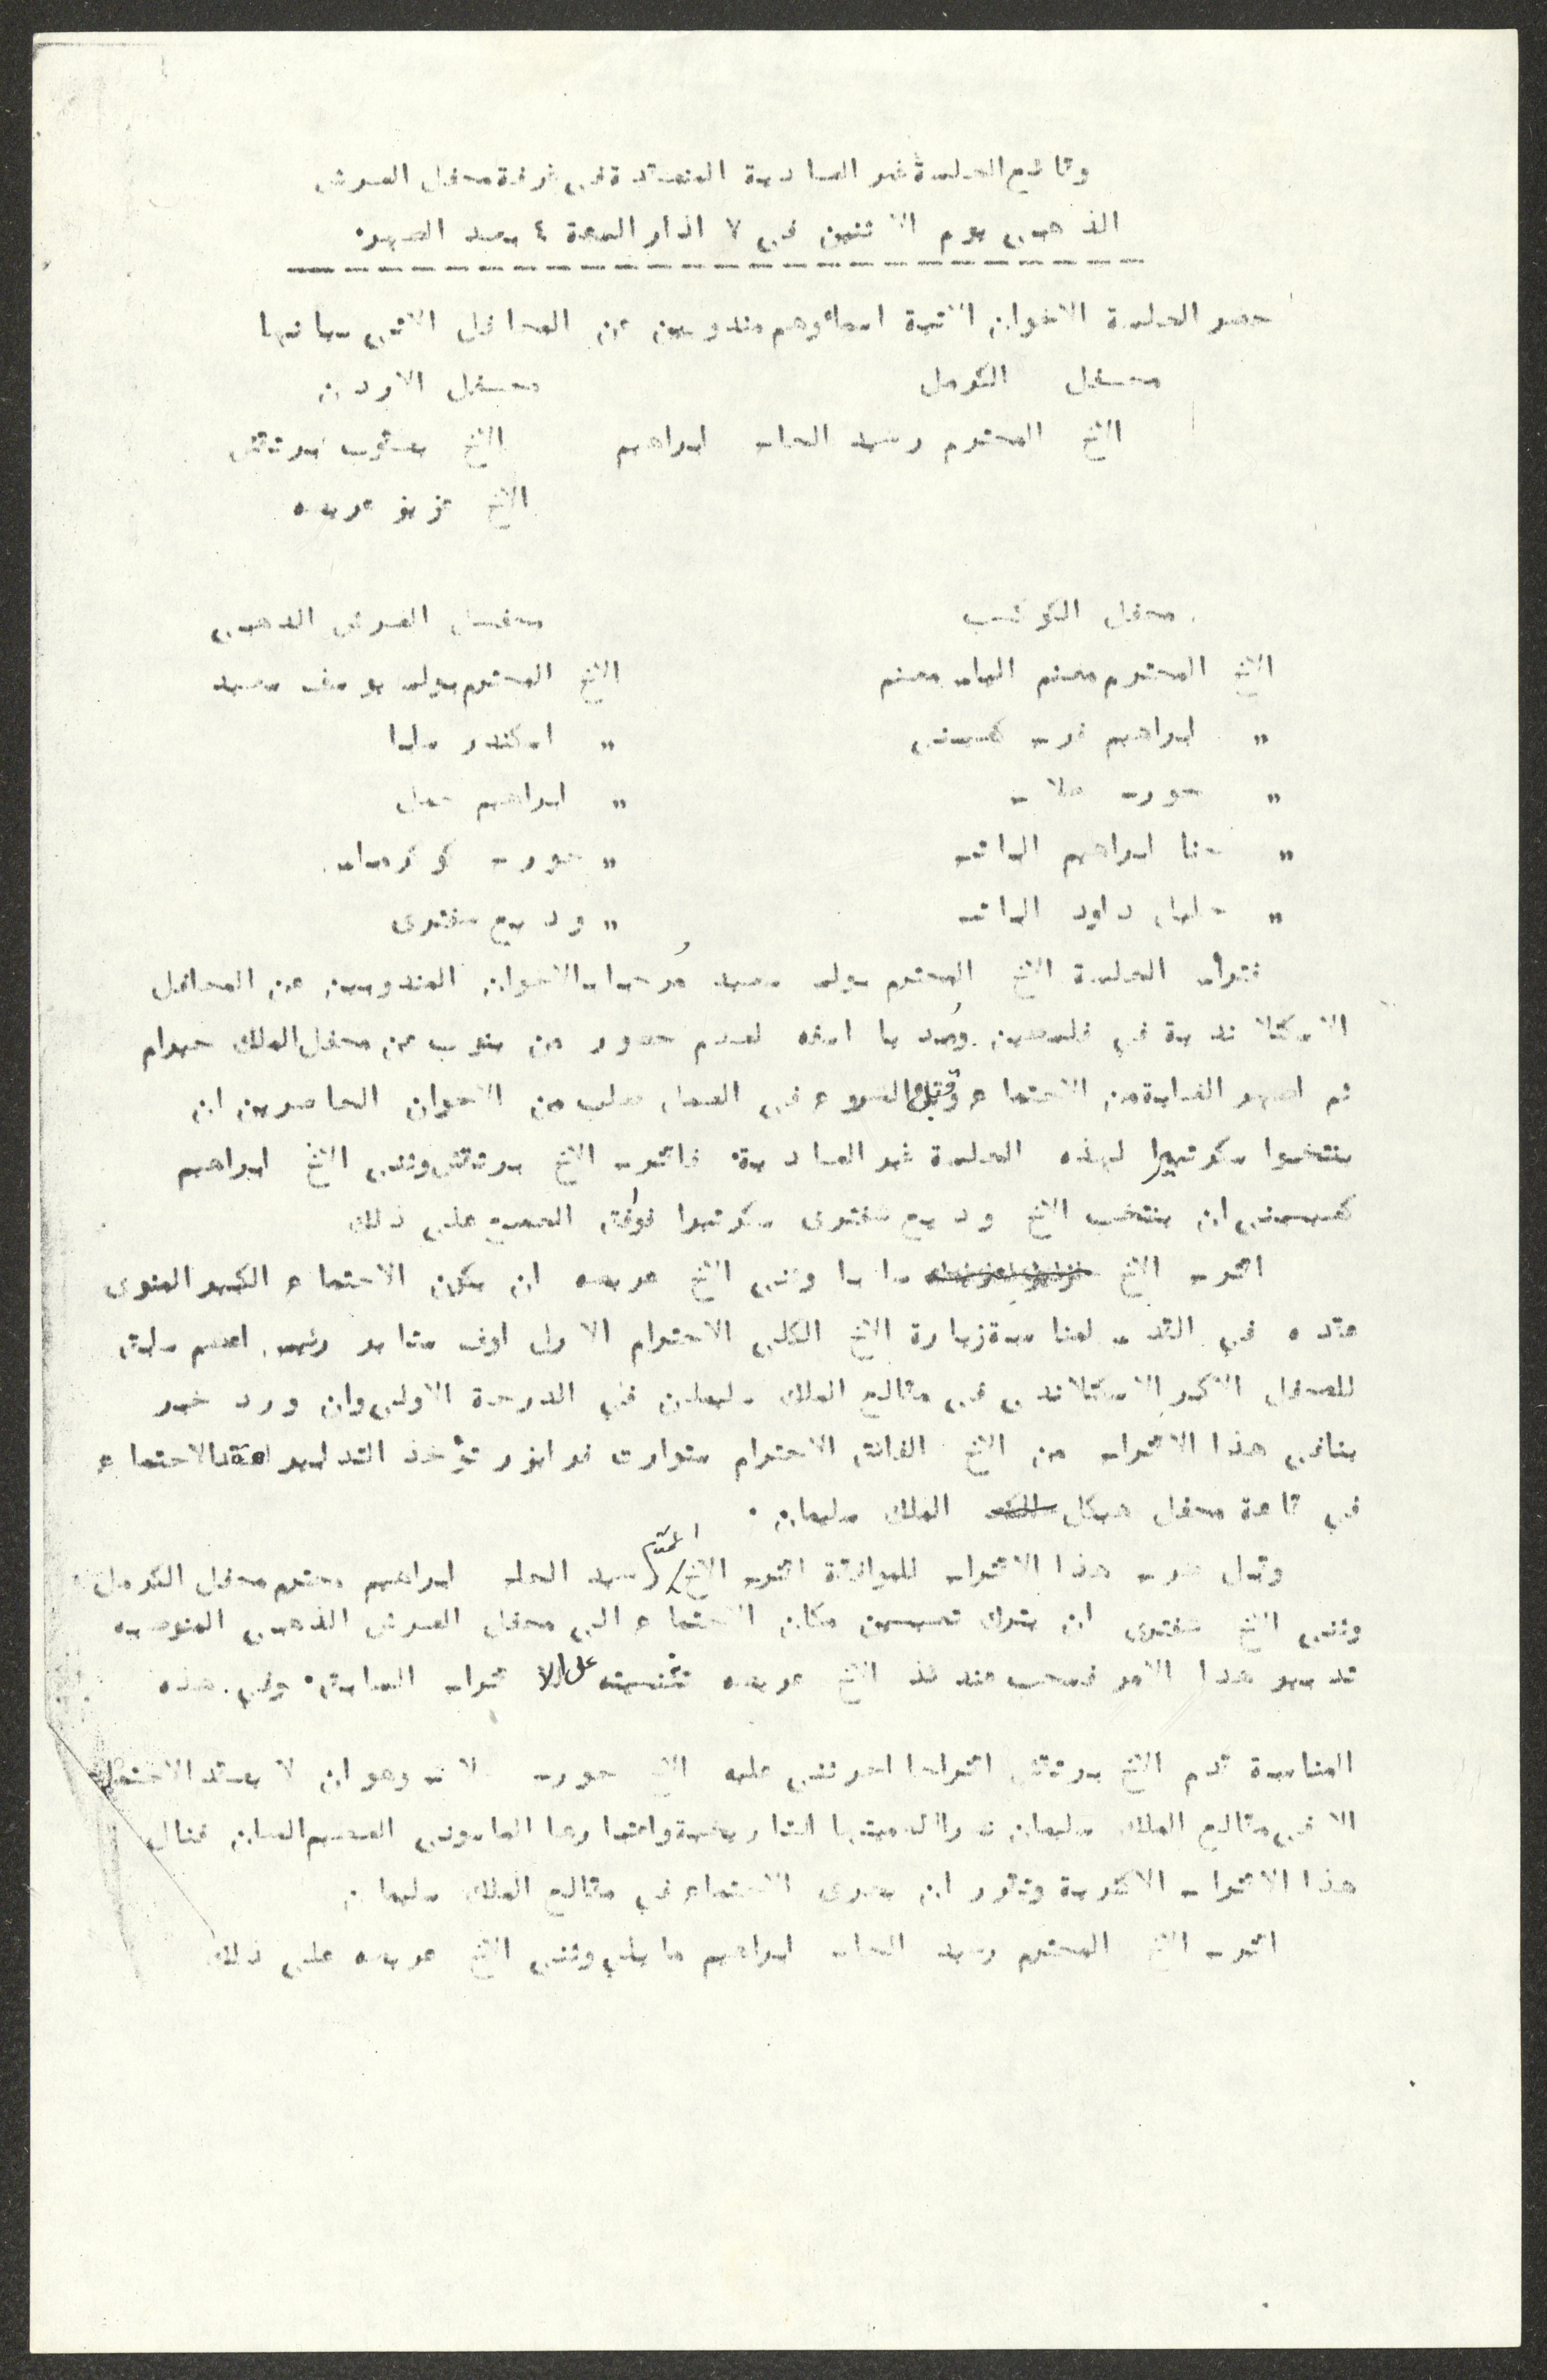 وقائع الجلسة غير العادية المنعقدة في غرفة محفل العرش
الذهبي يوم الاثنين في ٧ اذار الساعة ٤ بعد الظهر.
حضر الجلسة الاخوان الاتية اسماؤهم مندوبين عن المحافل الاتي بيانها
محفل الكرمل
محفل الاردن
الاخ المحترم رشيد الحاج ابراهيم
الاخ يعقوب بردقش
الاخ عزيز عريضه
محفل الكوكب
محفل العرش الذهبي
الاخ المحترم معنم الياس معنم
الاخ المحترم بولس يوسف سعيد
" ابراهيم فرج كعيبني
" اسكندر سابا
" جورج صلاح
" ابراهيم جمل
" حنا ابراهيم الياتس
" جورج
" خليل داود الياتس
" وديع شفتري
فترأس الجلسة الاخ المحترم بولس سعيد مرحبا بالاخوان المندوبين عن المحافل
الاسكتلاندية في فلسطين ومبديا اسفه لعدم حضور من ينوب عن محفل الملك حيرام
ثم اظهر الغاية من الاجتماع وقبل الشروع في العمل طلب من الاخوان الحاضرين ان
ينتخبوا سكرتيرا لهذه الجلسة غير العادية. فاقترح الاخ بردقش وثنى الاخ ابراهيم
كعيبني ان ينتخب الاخ وديع شفتري سكرتيرا فوافق الجميع على ذلك
اقترح الاخ سابا وثنى الاخ عريضه ان يكون الاجتماع الكبير المنوى
عقده في القدس لمناسبة زيارة الاخ الكلي الاحترام الاول اوف رئيس اعظم سابق
للمحفل الاكبر الاسكتلاندي في مقالع الملك سليمان في الدرجة الاولى وان ورد خبر
ينافي هذا الاقتراح من الاخ الفائق الاحترام ستوارت تؤخذ التدابير لعقد الاجتماع
في قاعة محفل هيكل الملك سليمان.
وقبل طرح هذا الاقتراح للموافقة اقترح الاخ المحترم رشيد الحاج ابراهيم محترم محفل الكرمل
وثنى الاخ شفتري ان يترك تعيين مكان الاجتماع الى محفل العرش الذهبي المنوط به
تدبير هذا الامر فسحب عندئذ الاخ عريضه تثنيته على الاقتراح السابق. وفي هذه
المناسبة قدم الاخ بردقش اقتراحا اخر ثنى عليه الاخ جورج صلاح وهو ان لا يعقد الاجتماع
الا في مقالع الملك سليمان نظرا لاهميتها التاريخية واعتبارها الماسوني العظيم الشان فنال
هذا الاقتراح الاكثرية وتقرر ان يجرى الاجتماع في مقالع الملك سليمان
اقترح الاخ المحترم رشيد الحاج ابراهيم ما يلي وثنى الاخ عريضه على ذلك